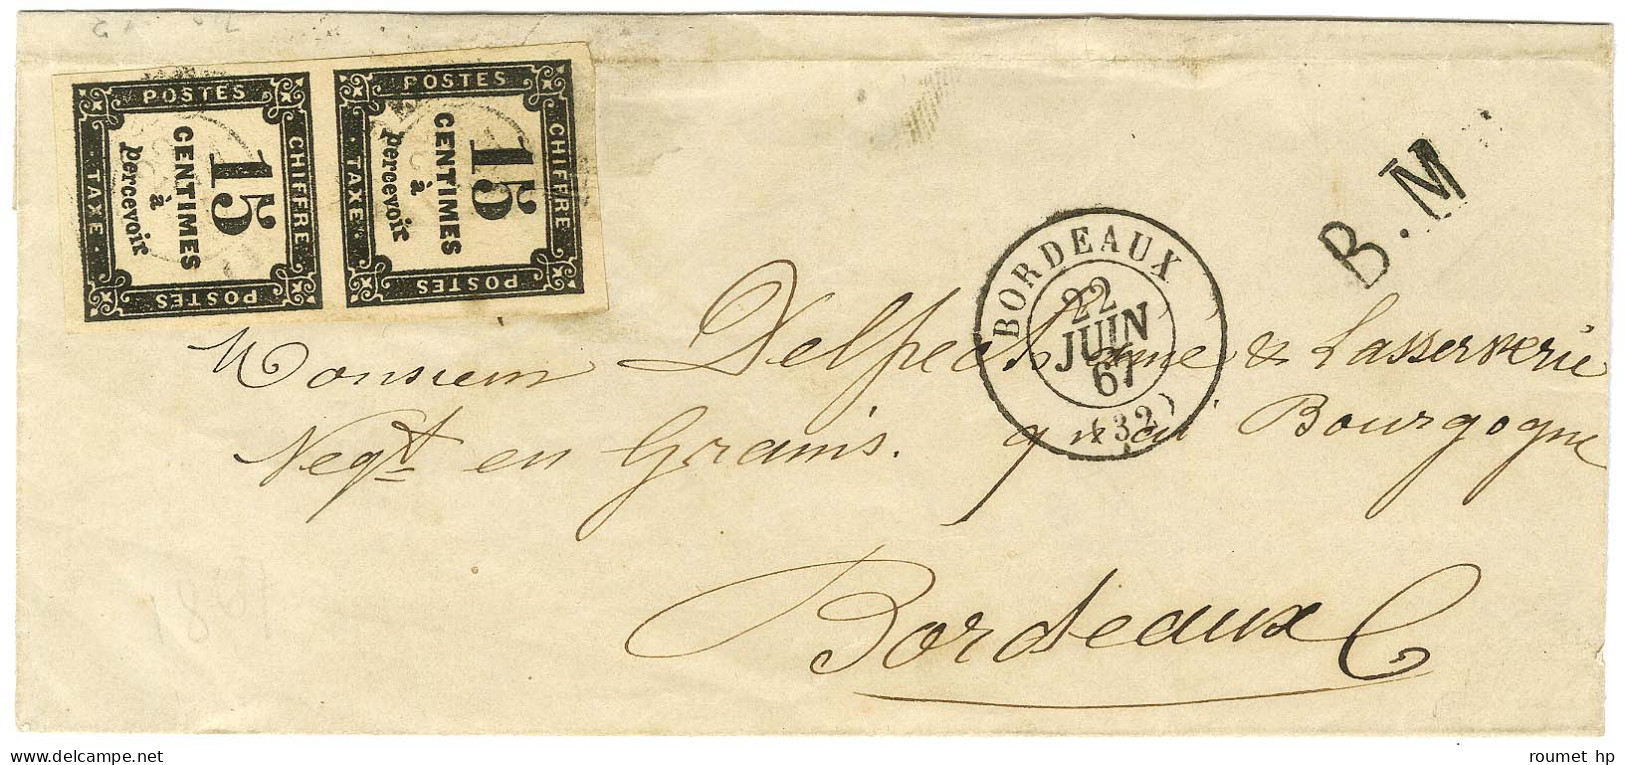 POSTES
CHIFFRE
TAXE
POSTES
15
CENTIMES
à
percevoir
POSTES
CHIFFRE
TAXE
POSTES
15
CENTIMES
à
percevoir
B.M
BORDEAUX
22
JUIN
67
(32)
Monsieur Delpech aîné & Lasserrerie
Negt en Grains. quai Bourgogne
Bordeaux
roumet hp